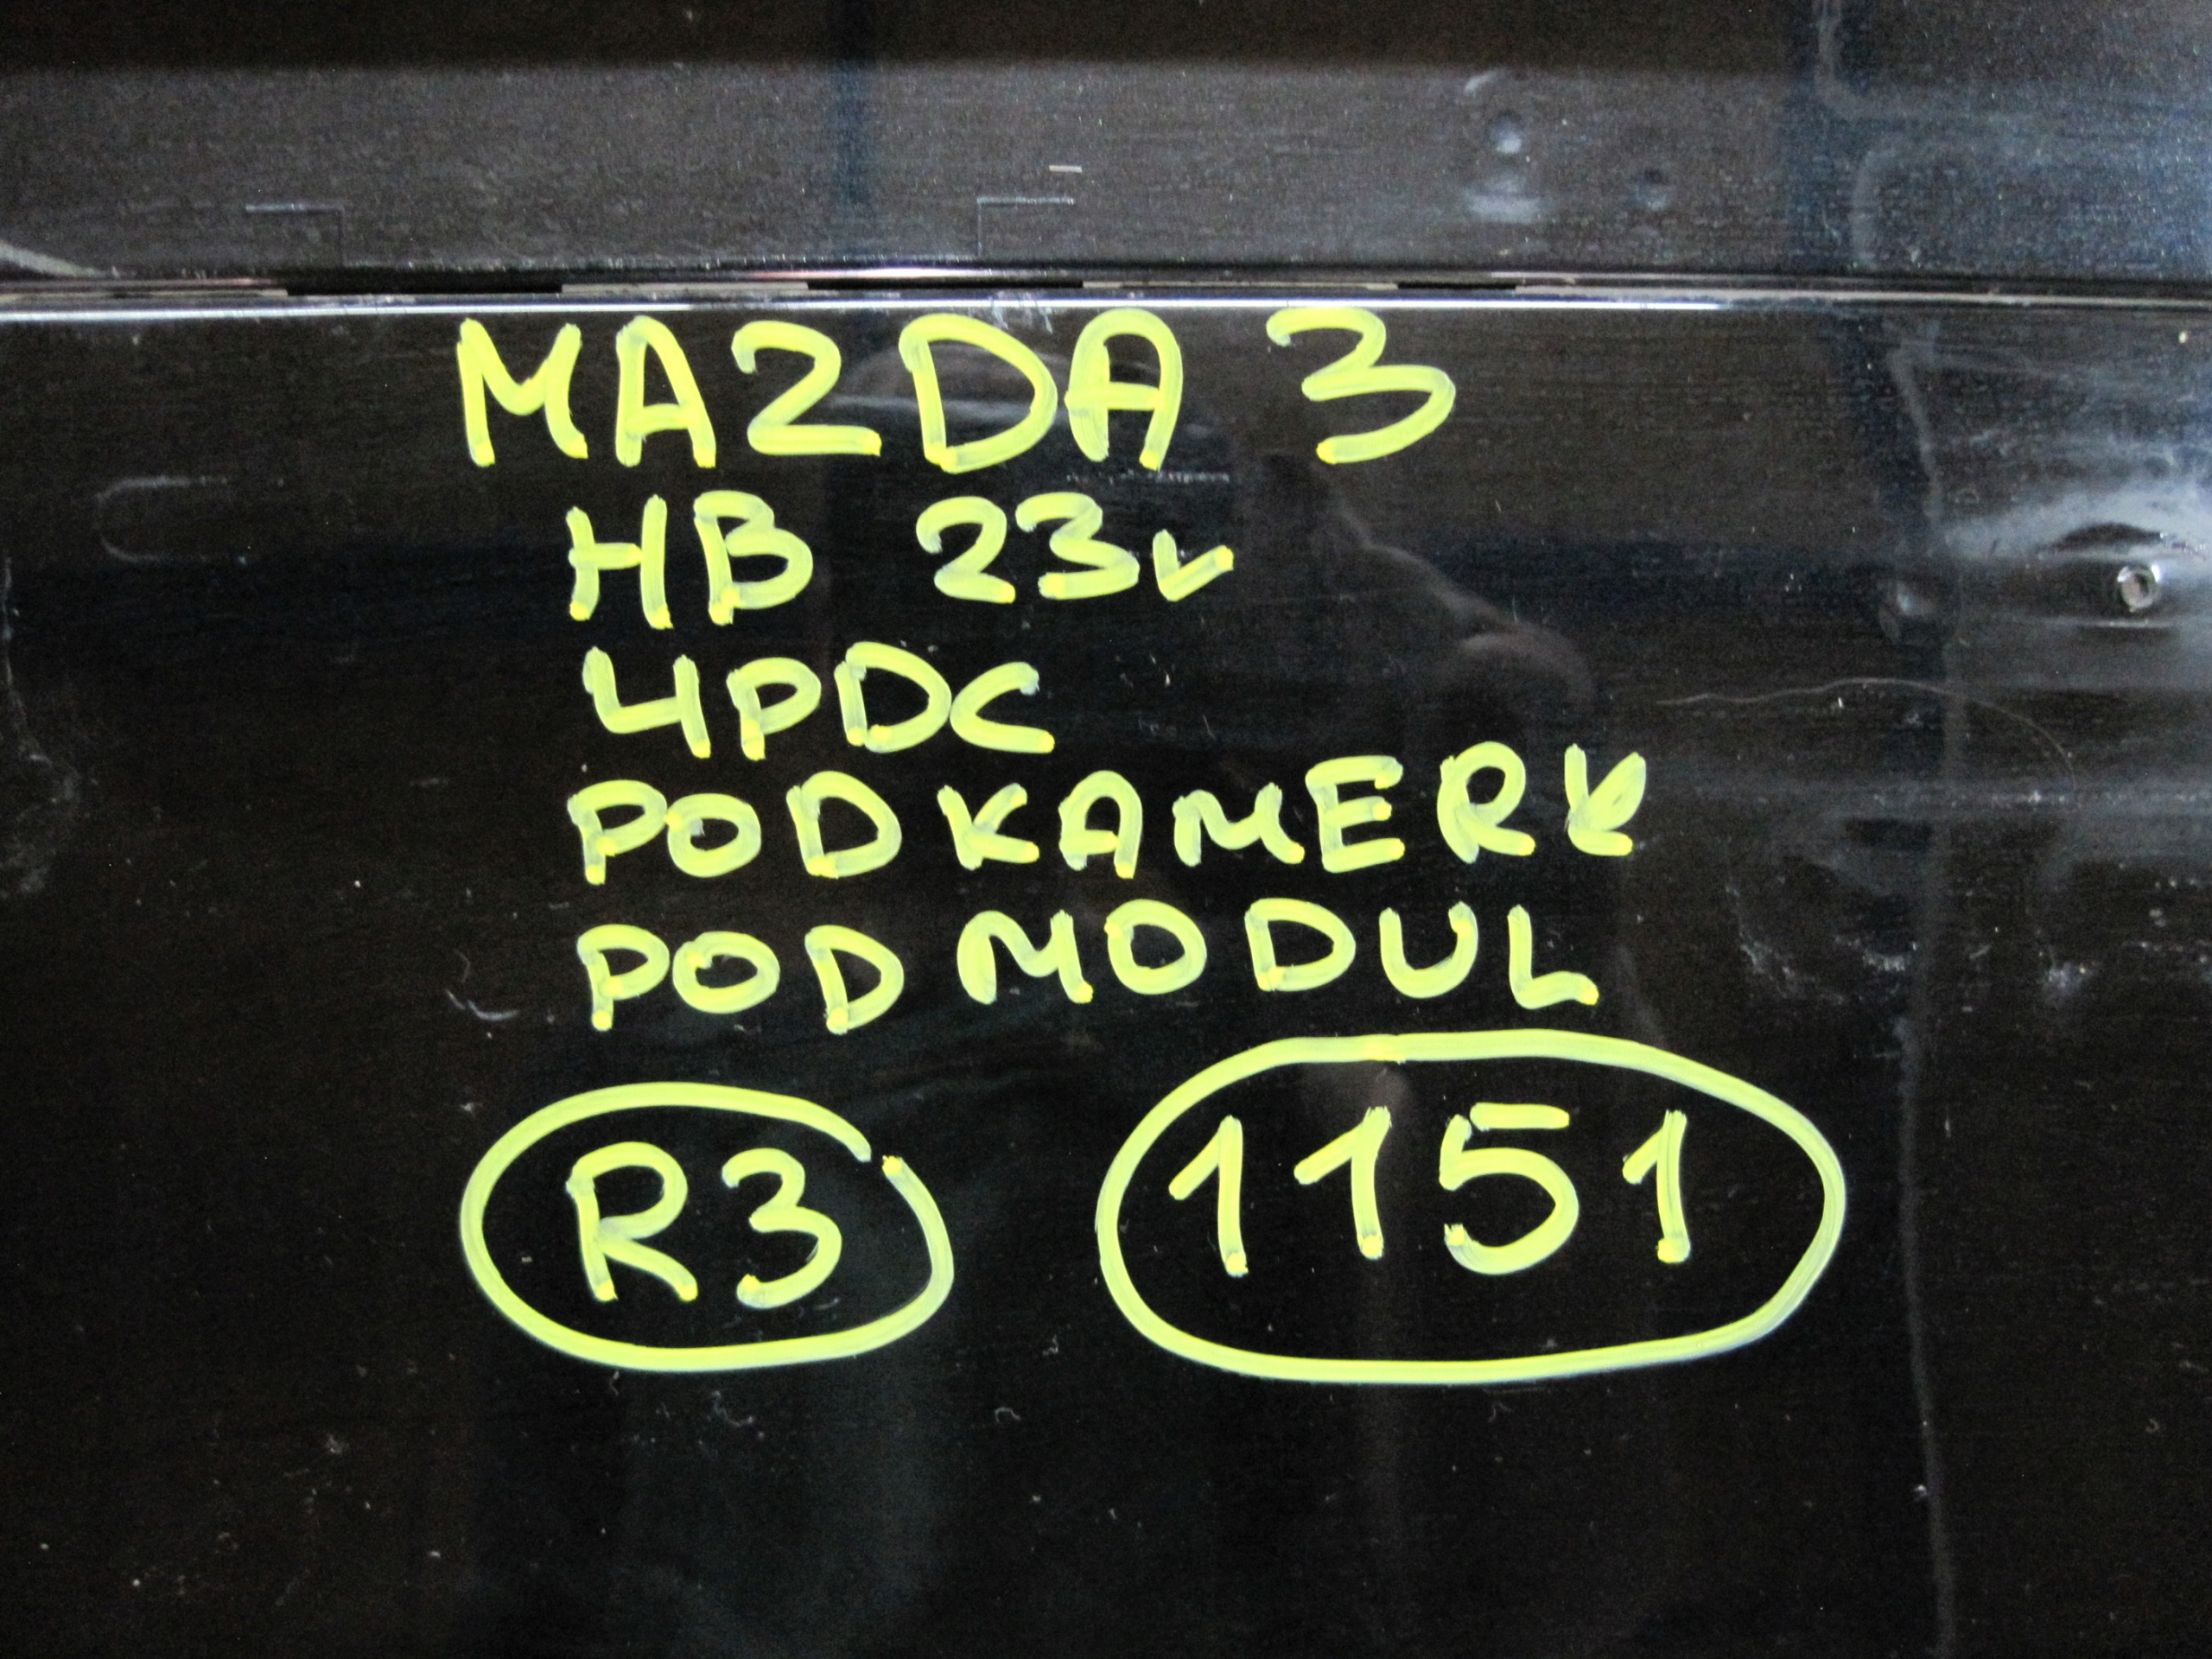 MAZDA 3
HB 23r
4PDC
POD KAMERĘ
POD MODUL
R3 1151